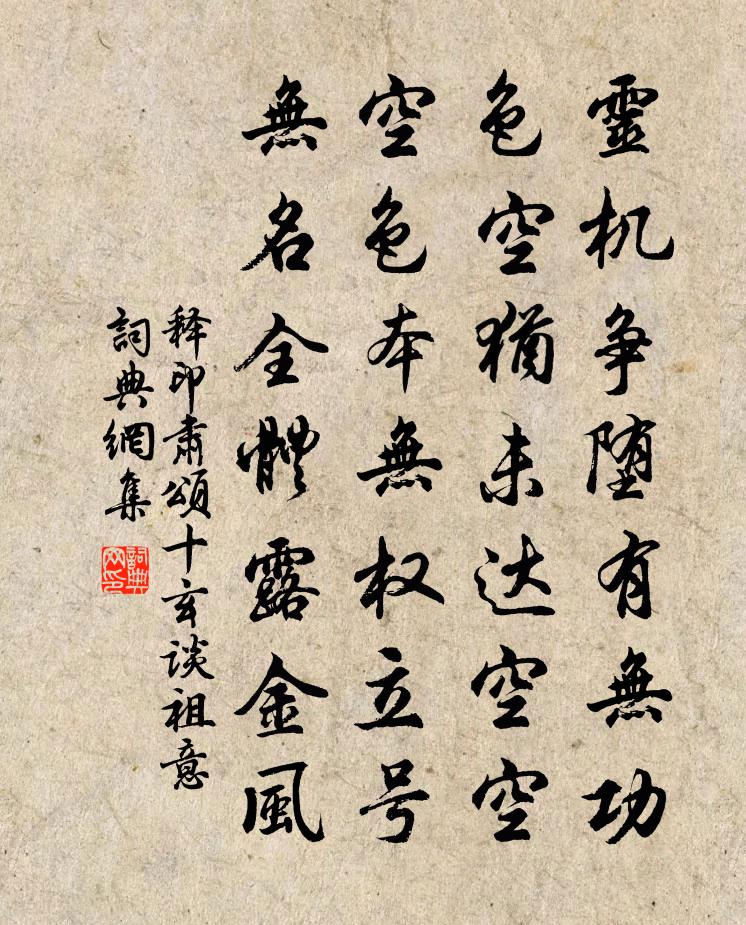 靈机争堕有無功
色空猶未达空空
空色本無权立号
無名全體露金風
释印肃頌十玄谈祖意
詞典網集
詞典网印